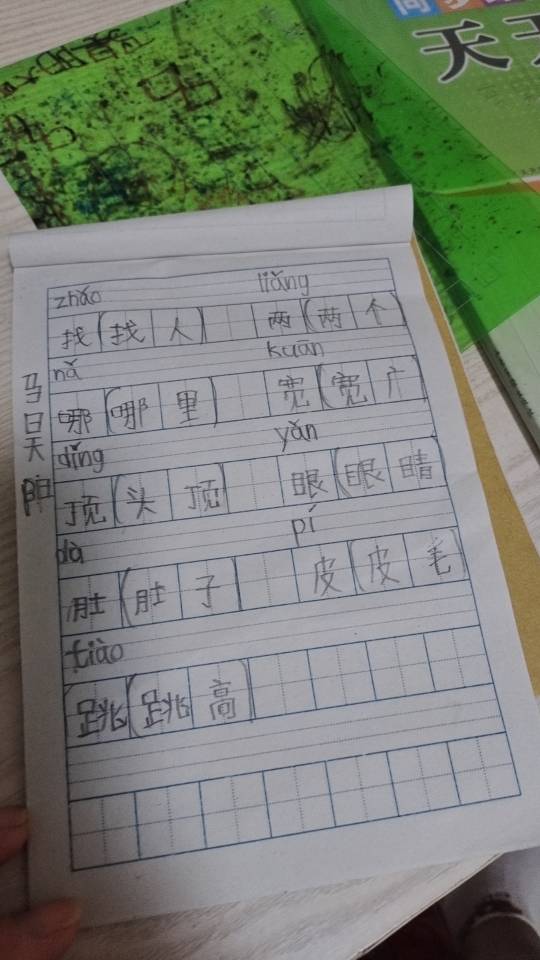 天
zhǎo liǎng
找(找人) 两(两个)
nǎ kuān
哪(哪里) 宽(宽广)
dǐng yǎn
顶(头顶) 眼(眼睛)
dà pí
肚(肚子) 皮(皮毛)
tiào
跳(跳高)
马昊阳